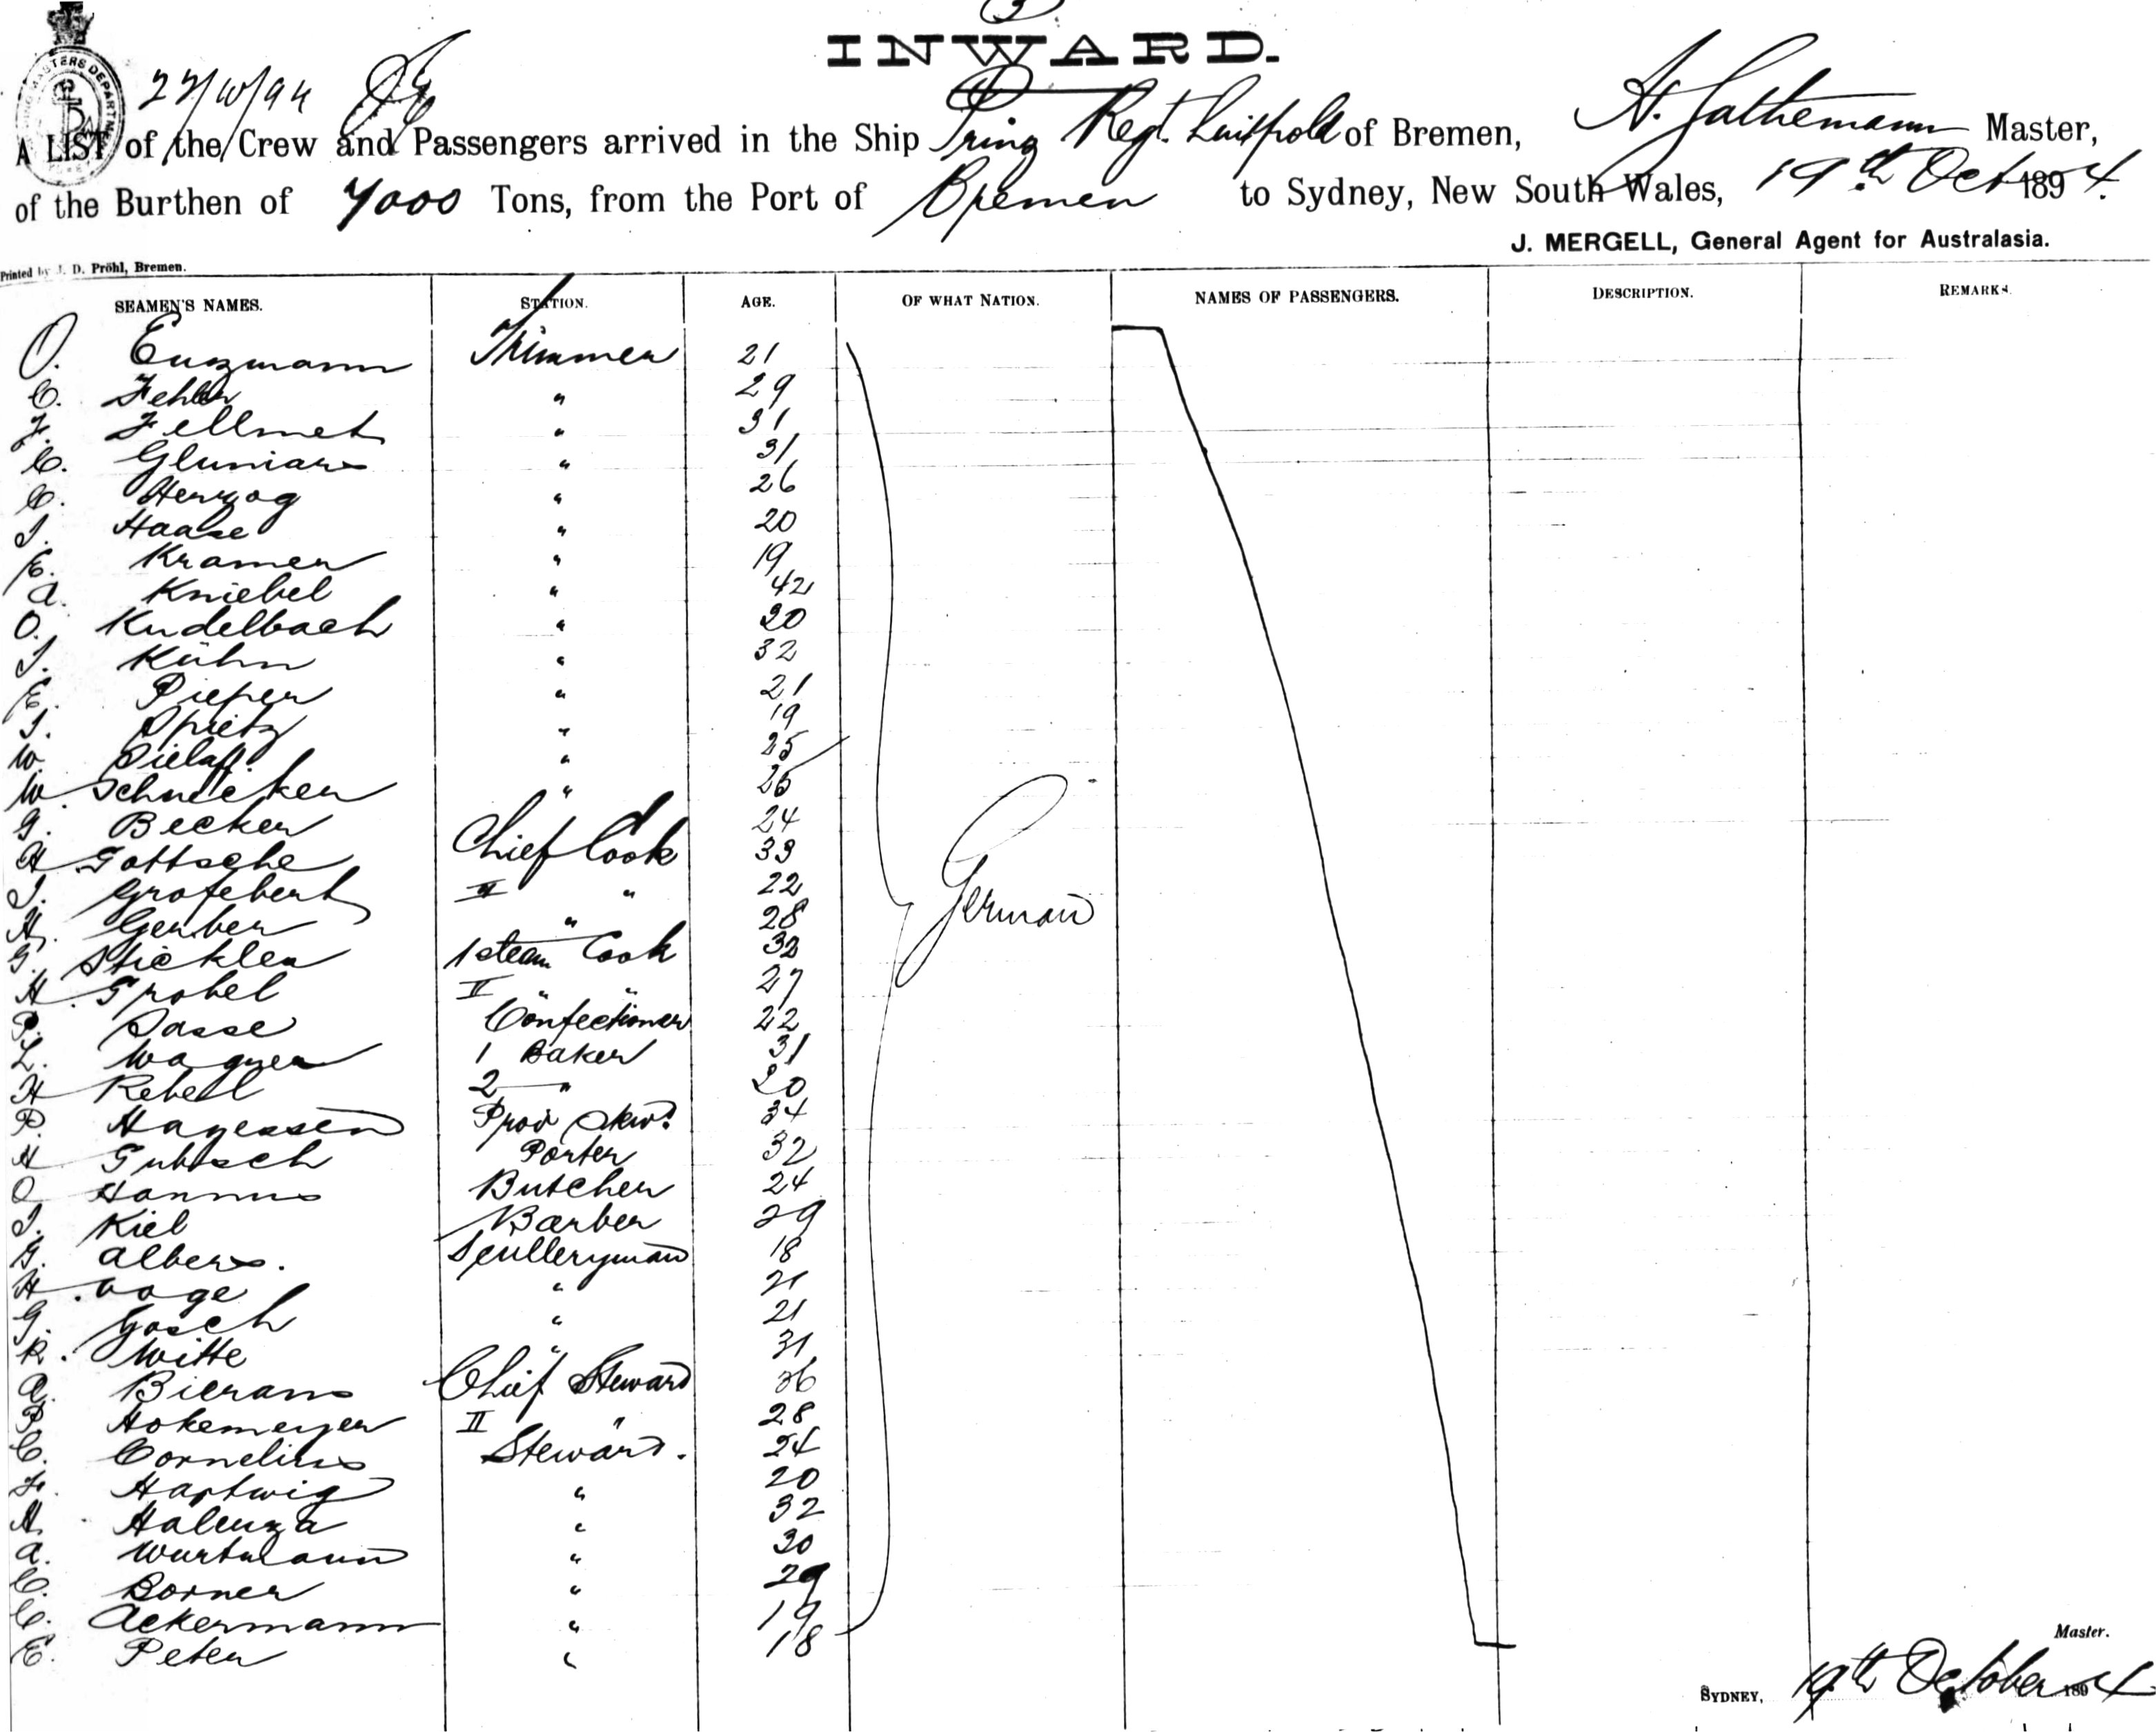 3
INWARD.
22/10/94
A LIST of the Crew and Passengers arrived in the Ship Prinz Regt. Luitpold of Bremen, H. Gathemann Master,
of the Burthen of 4000 Tons, from the Port of Bremen to Sydney, New South Wales, 19th Oct 1894.
J. MERGELL, General Agent for Australasia.
Printed by J. D. Pröhl, Bremen.
SEAMEN'S NAMES. STATION. AGE. OF WHAT NATION. NAMES OF PASSENGERS. DESCRIPTION. REMARKS.
O. Enzmann Trimmer 21
C. Fehler " 29
F. Fellmet " 31
C. Gluniars " 31
C. Herzog " 26
J. Haase " 20
E. Kramer " 19
A. Kniebel " 42
O. Kudelbach " 20
J. Kühn " 32
E. Pieper " 21
J. Spietz " 19
W. Sielaff " 25
W. Schnicker " 25
G. Becker 24
H Gottsche Chief Cook 33
J. Grofebert II " 22
H. Gerber " 28
G. Stickler 1 steam Cook 32
H. Grobel II " " 27
P. Sasse Confectioner 22
L. Wagner 1 Baker 31
H Rebell 2 " 20
P. Hayessen Prov Stwd. 34
H Gubisch Porter 32
O Hannus Butcher 24
J. Kiel Barber 29
G. Albers. Scülleryman 18
H. Voge " 21
G. Gosch " 21
R. Witte " 31
A. Bierans Chief Steward 36
P Hokemeyer II " 28
C. Cornelius Steward. 24
F. Hartwig " 20
H. Halenza " 32
A. Wurtmann " 30
C. Borner " 29
C. Ackermann " 19
E. Peter " 18
German
Master.
SYDNEY, 19th October 1894